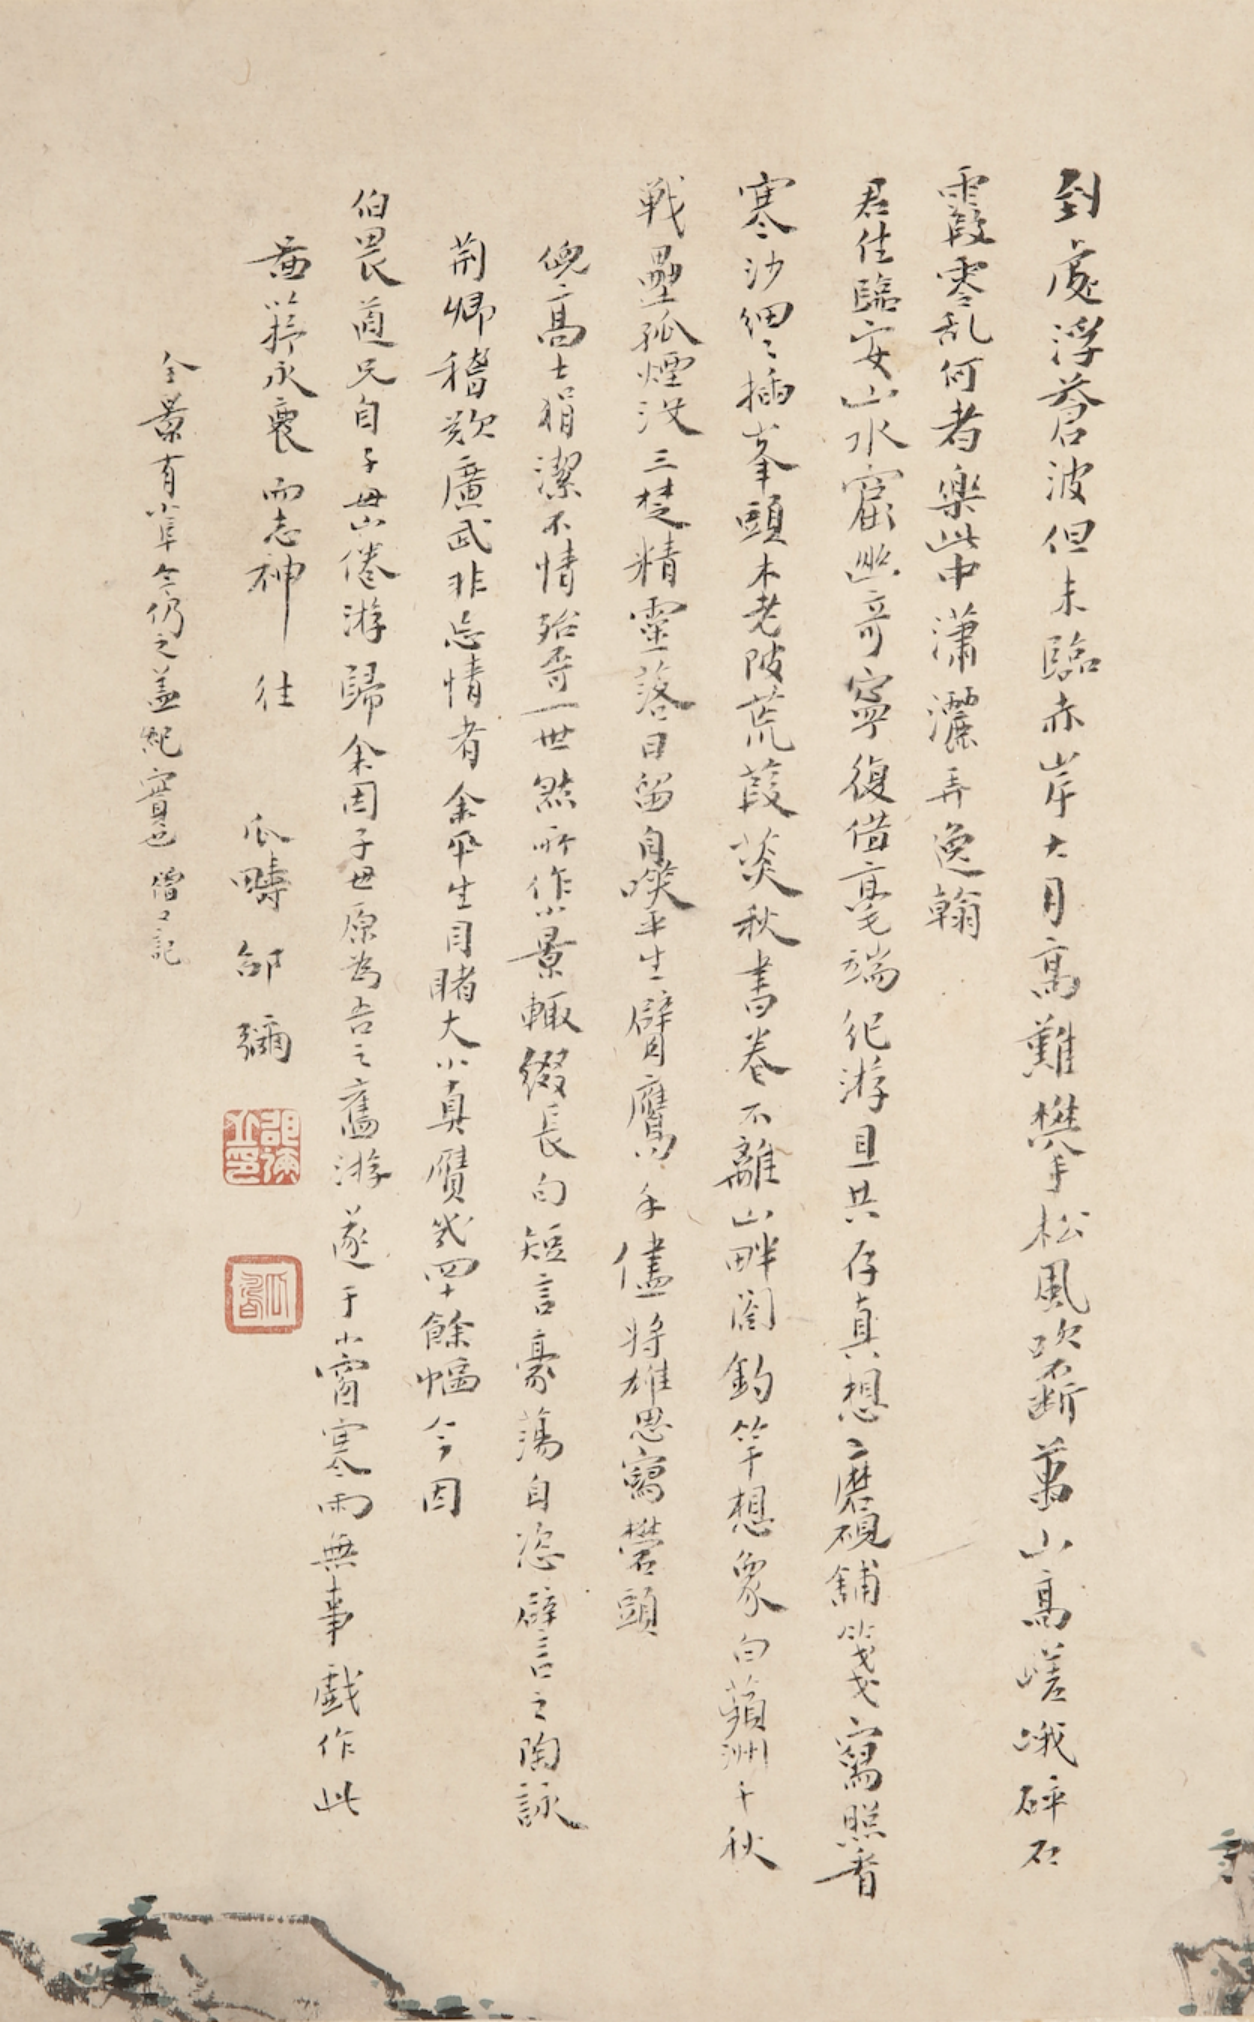 到處浮蒼波但未臨赤岸大月高難攀手松風吹不斷萬山高嵯峨碎石
霞零乱何者樂此中瀟灑弄逸翰
君住臨安山水窟幽奇寧復借毫端紀游且共存真想二磨硯舖箋寫照看
寒沙細〻插峯頭木老陂荒葭菼秋書卷不離山畔閣釣竿想象白蘋洲千秋
戦壘孤煙没三楚精靈落日留自嘆平生臂鷹手儘將雄思寫礬頭
倪高士狷潔不情殆奇一世然所作小景輙綴長句短言豪蕩自恣辟言之陶詠
荊卿稽欵廣武非忘情者余平生目睹大小真贋幾四十餘幅今因
伯畏道兄自子毋山倦游歸余因子毋原為吾之舊游遂于小窗寒雨無事戲作此
啚并永襄而志神往
瓜疇邵彌
邵彌之印
瓜疇
全景有小阜今仍之蓋紀實也僧彌記